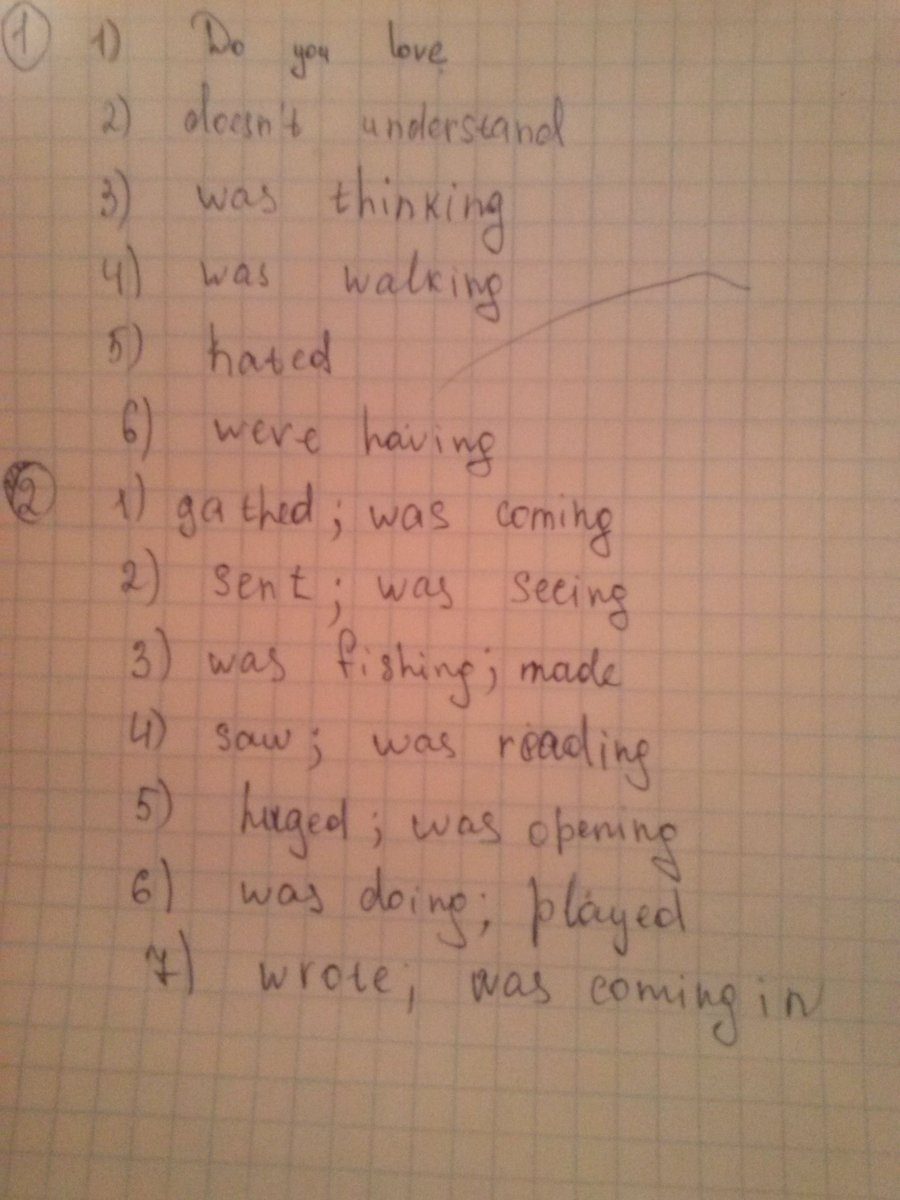 1 1) Do you love
2) doesn't understand
3) was thinking
4) was walking
5) hated
6) were having
2 1) gathed; was coming
2) sent; was seeing
3) was fishing; made
4) saw; was reading
5) huged; was opening
6) was doing; played
7) wrote; was coming in